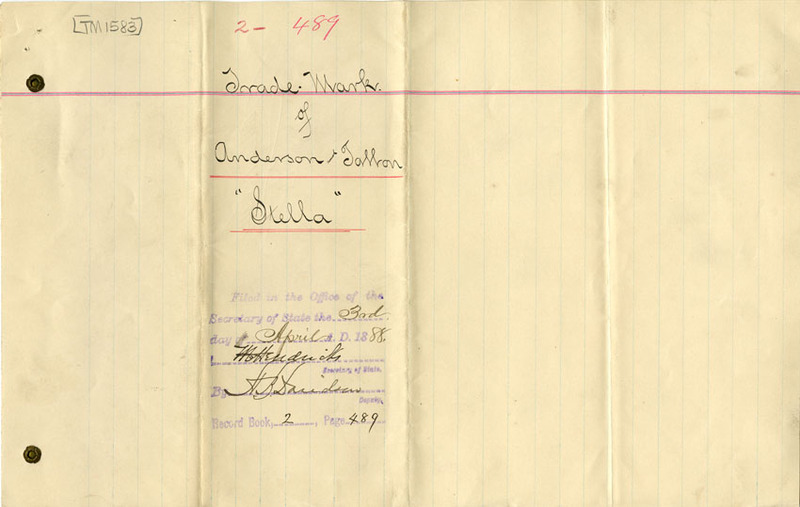 [TM1583]
2- 489
Trade-Mark.
of
Anderson & Tallon
"Stella"
Filed in the Office of the
Secretary of State the 3rd
day of April A. D. 1888.
W C Hendricks
Secretary of State.
By A B Davidson
Deputy.
Record Book, 2, Page 489